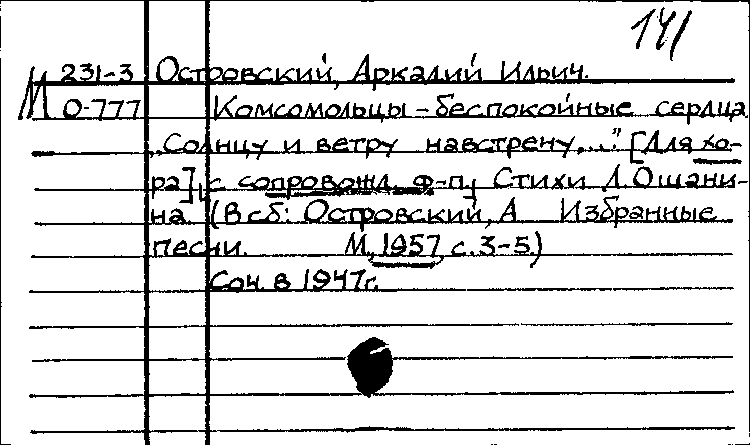 141
М 231-3 Островский, Аркадий Ильич.
О-777 Комсомольцы - беспокойные сердца
„Солнцу и ветру навстречу,...” [Для хо-
ра], с сопровожд. ф-п, Стихи Л. Ошани-
на (В сб: Островский, А Избранные
песни. М, 1957, с. 3-5.)
Соч. в 1947г.